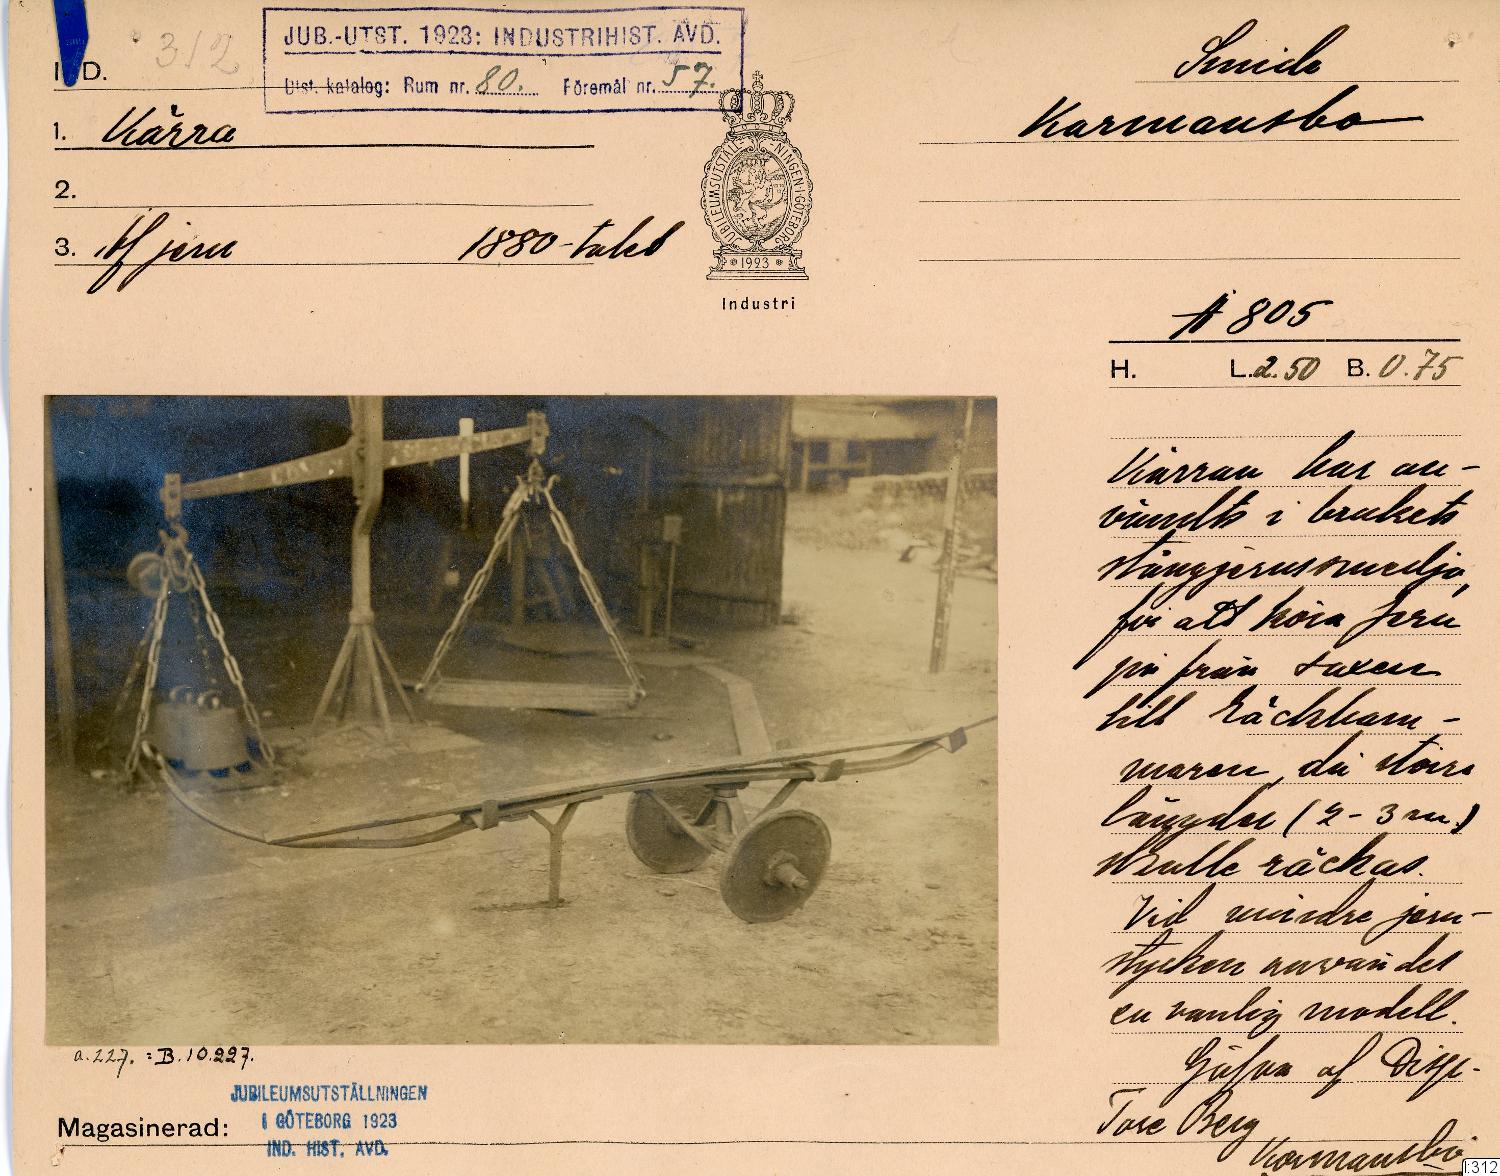 I D. 312
JUB.-UTST. 1923: INDUSTRIHIST. AVD.
Utst. katalog: Rum nr. 80. Föremål nr. 57.
1. Kärra
2.
3. Af jern 1880-talet
JUBILEUMSUTSTÄLL-NINGEN·I·GÖTEBORG
1923
Industri
Smide
Karmansbo
A 805
H. L. 2.50 B. 0.75
Kärran har an-
vändts i brukets
stångjernssmedja,
för att köra jern
på från saxen
till räckham-
maren, då större
längder (2-3 m.)
skulle räckas.
Vid mindre jern-
stycken användes
en vanlig modell.
Gåfva af Disp.
Tore Berg
Karmansbo
a.227. : B.10.227.
JUBILEUMSUTSTÄLLNINGEN
I GÖTEBORG 1923
IND. HIST. AVD.
Magasinerad:
I:312